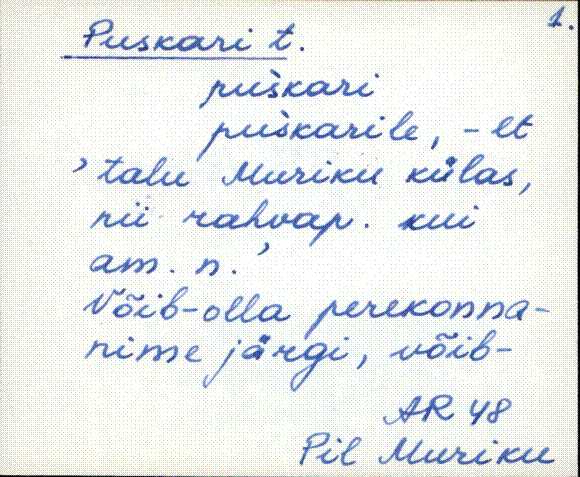 1.
Puskari t.
puškari
puškarile, -lt
’talu Muriku külas,
nii rahvap. kui
am. n.’
Võib-olla perekonna-
nime järgi, võib-
AR 48
Pil Muriku